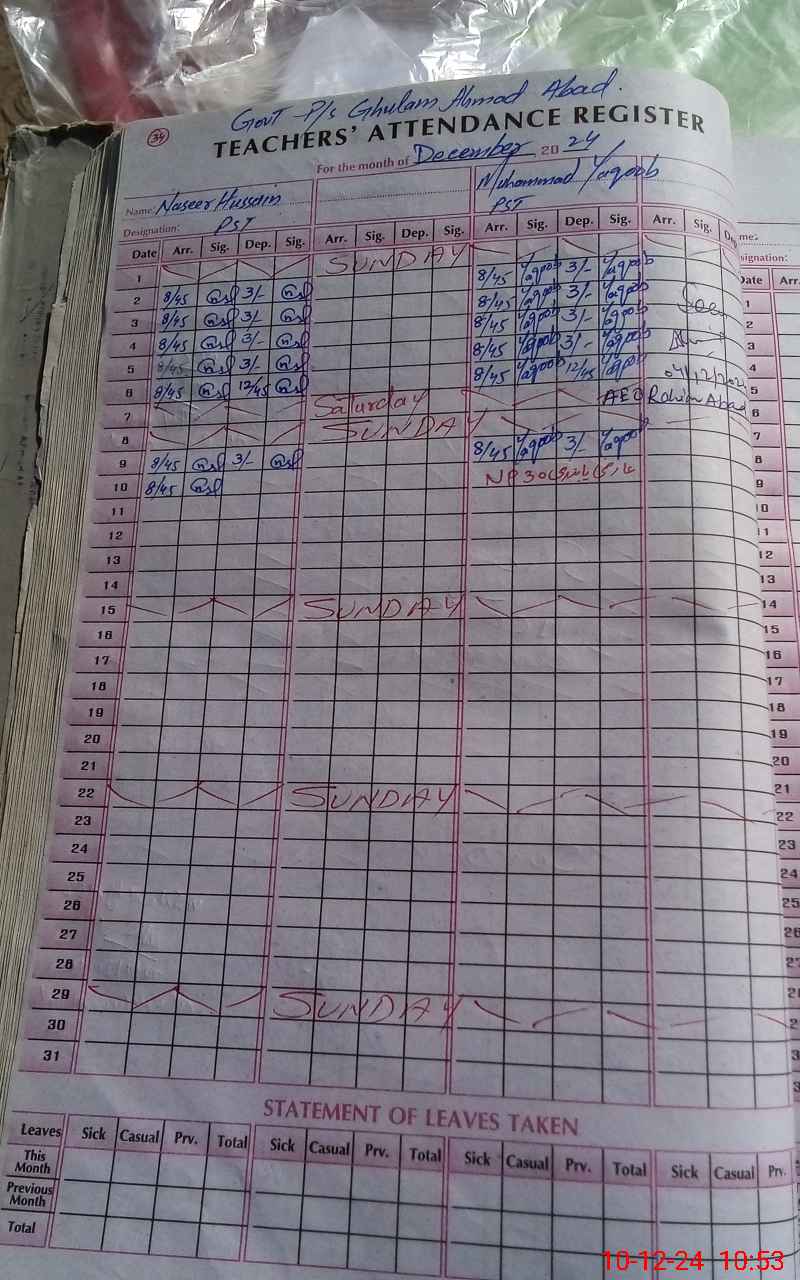 Govt P/s Ghulam Ahmad Abad.
34
TEACHERS' ATTENDANCE REGISTER
For the month of December 20 24
Name: Naseer Hussain Muhammad Yaqoob
Designation: PST PST
Date Arr. Sig. Dep. Sig. Arr. Sig. Dep. Sig. Arr. Sig. Dep. Sig. Arr. Sig. Dep
1 SUNDAY
2 8/45 3/- 8/45 Yaqoob 3/- Yaqoob
3 8/45 3/- 8/45 Yaqoob 3/- Yaqoob
4 8/45 3/- 8/45 Yaqoob 3/- Yaqoob
5 8/45 3/- 8/45 Yaqoob 3/- Yaqoob
6 8/45 12/45 8/45 Yaqoob 12/45 Yaqoob
7 Saturday AEO Rahim Abad
8 SUNDAY
9 8/45 3/- 8/45 Yaqoob 3/- Yaqoob
10 8/45
11
12
13
14
15 SUNDAY
16
17
18
19
20
21
22 SUNDAY
23
24
25
26
27
28
29 SUNDAY
30
31
STATEMENT OF LEAVES TAKEN
Leaves Sick Casual Prv. Total Sick Casual Prv. Total Sick Casual Prv. Total Sick Casual Prv.
This Month
Previous Month
Total
me:
signation:
Date Arr.
1
2
3
4
5
6
7
8
9
10
11
12
13
14
15
16
17
18
19
20
21
22
23
24
25
26
10-12-24 10:53